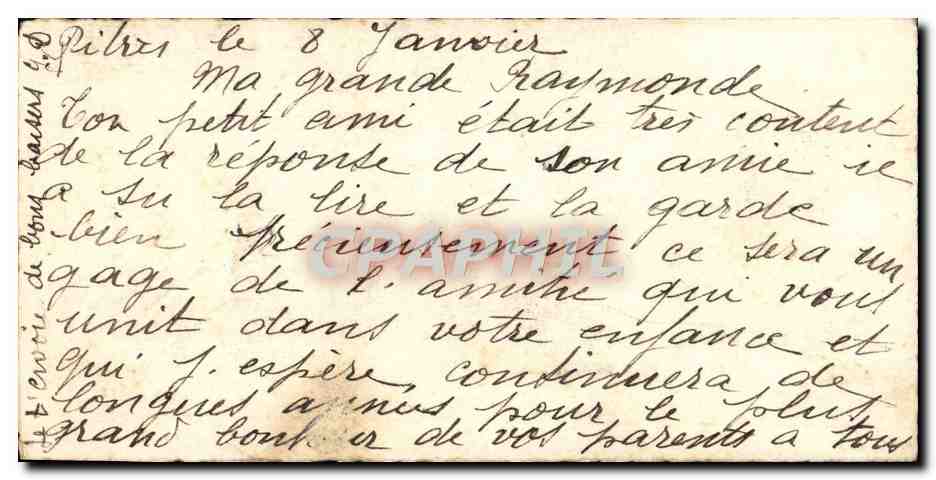 Pitres le 8 Janvier
Ma grande Raymonde
Ton petit ami était très content
de la réponse de son amie ie
a su la lire et la garde
bien précieusement ce sera un
gage de l'amitie qui vous
unit dans votre enfance et
qui j. espère, continuera de
longues années pour le plus
grand bonheur de vos parents a tous
je t'envoie de bons baisers
CPAPHIL